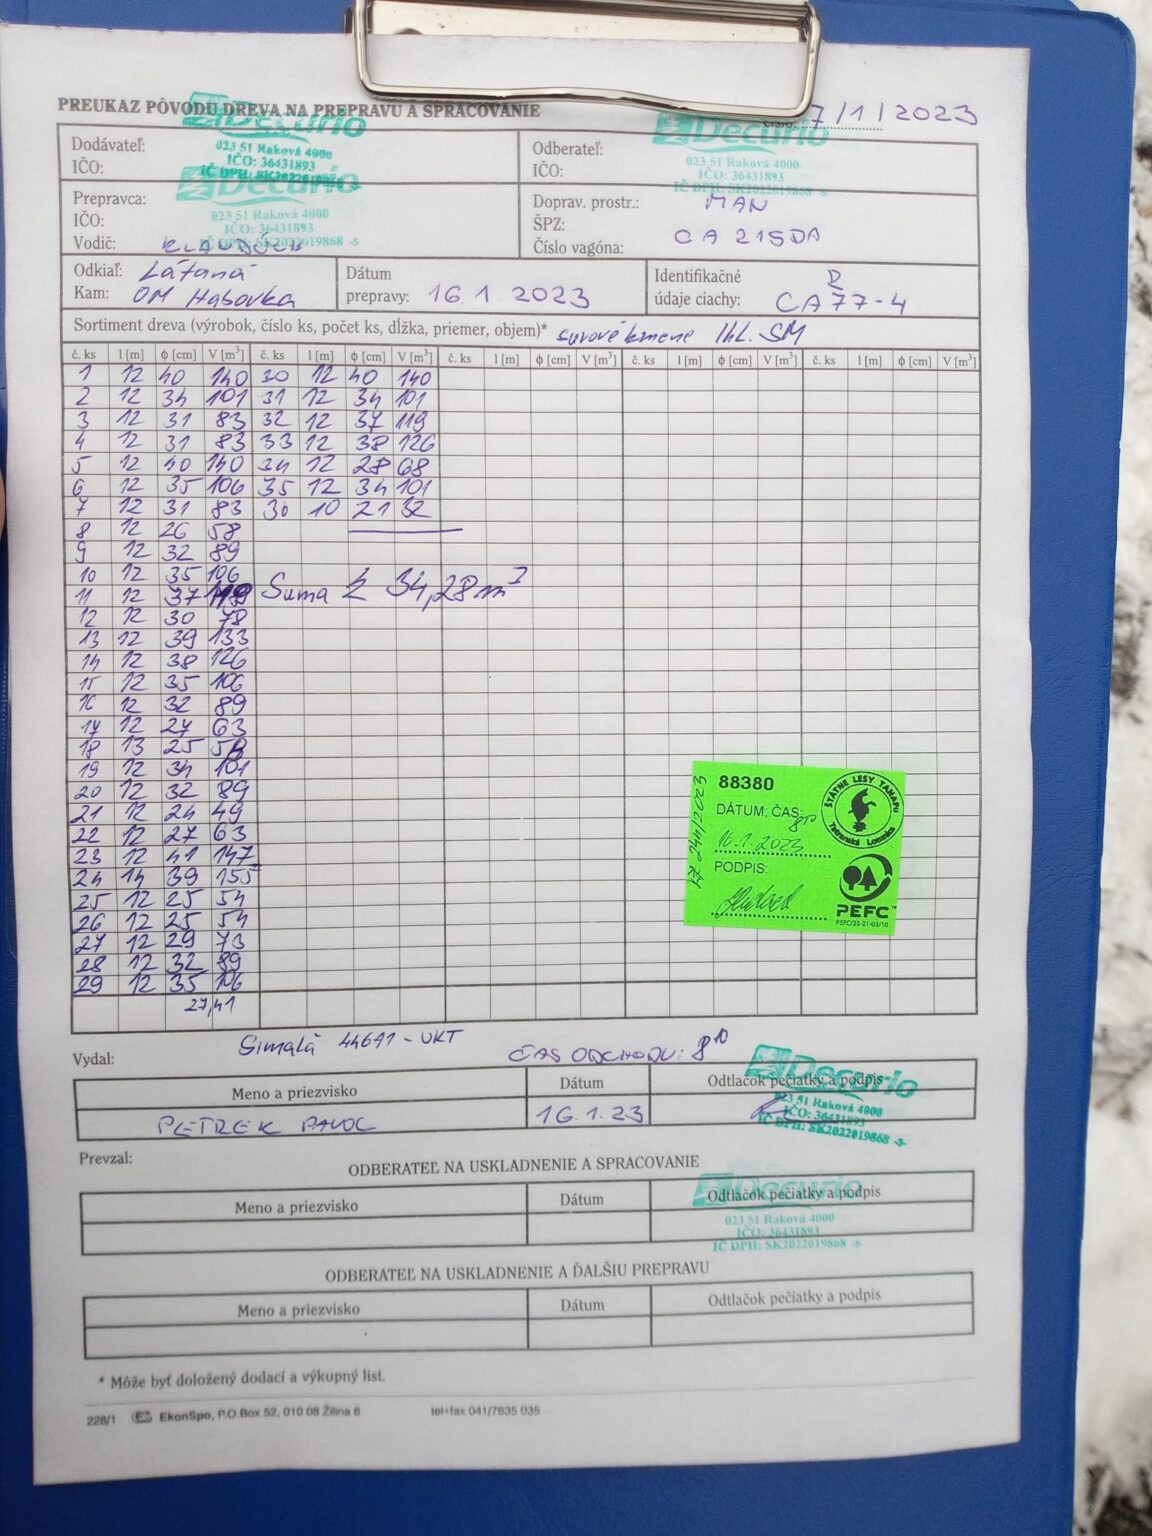 PREUKAZ PÔVODU DREVA NA PREPRAVU A SPRACOVANIE
číslo: 7/1/2023
Decurio
023 51 Raková 4000
IČO: 36431893
IČ DPH: SK2022019868 -s-
Decurio
023 51 Raková 4000
IČO: 36431893
IČ DPH: SK2022019868 -s-
Dodávateľ:
IČO:
Odberateľ:
IČO:
Decurio
023 51 Raková 4000
IČO: 36431893
IČ DPH: SK2022019868 -s-
Prepravca:
IČO:
Vodič:
Doprav. prostr.: MAN
ŠPZ: CA 215DA
Číslo vagóna:
Odkiaľ: Látaná
Kam: OM Habovka
Dátum
prepravy: 16.1.2023
Identifikačné D
údaje ciachy: CA77-4
Sortiment dreva (výrobok, číslo ks, počet ks, dĺžka, priemer, objem)* surové kmene Ihl. SM
č. ks l [m] ϕ [cm] V [m³] č. ks l [m] ϕ [cm] V [m³] č. ks l [m] ϕ [cm] V [m³] č. ks l [m] ϕ [cm] V [m³] č. ks l [m] ϕ [cm] V [m³]
1 12 40 140 30 12 40 140
2 12 34 101 31 12 34 101
3 12 31 83 32 12 37 119
4 12 31 83 33 12 38 126
5 12 40 140 34 12 28 68
6 12 35 106 35 12 34 101
7 12 31 83 30 10 21 32
8 12 26 58
9 12 32 89
10 12 35 106
11 12 37 119 Suma Σ 34,28 m³
12 12 30 78
13 12 39 133
14 12 38 126
15 12 35 106
16 12 32 89
17 12 27 63
18 13 25 58
19 12 34 101
20 12 32 89
21 12 24 49
22 12 27 63
23 12 41 147
24 14 39 155
25 12 25 54
26 12 25 54
27 12 29 73
28 12 32 89
29 12 35 106
27,41
88380
DÁTUM; ČAS: 8¹⁰
16.1.2023
PODPIS:
ŠTÁTNE LESY TANAPu
Tatranská Lomnica
PEFC™
PEFC/23-21-03/10
44671-UKT
ČAS ODCHODU: 8¹⁰
Vydal:
Meno a priezvisko Dátum Odtlačok pečiatky a podpis
PETREK PAVOL 16.1.23
Decurio
023 51 Raková 4000
IČO: 36431893
IČ DPH: SK2022019868 -s-
Prevzal:
ODBERATEĽ NA USKLADNENIE A SPRACOVANIE
Meno a priezvisko Dátum Odtlačok pečiatky a podpis
Decurio
023 51 Raková 4000
IČO: 36431893
IČ DPH: SK2022019868 -s-
ODBERATEĽ NA USKLADNENIE A ĎALŠIU PREPRAVU
Meno a priezvisko Dátum Odtlačok pečiatky a podpis
* Môže byť doložený dodací a výkupný list.
228/1 EkonSpo, P.O.Box 52, 010 08 Žilina 8 tel+fax 041/7635 035